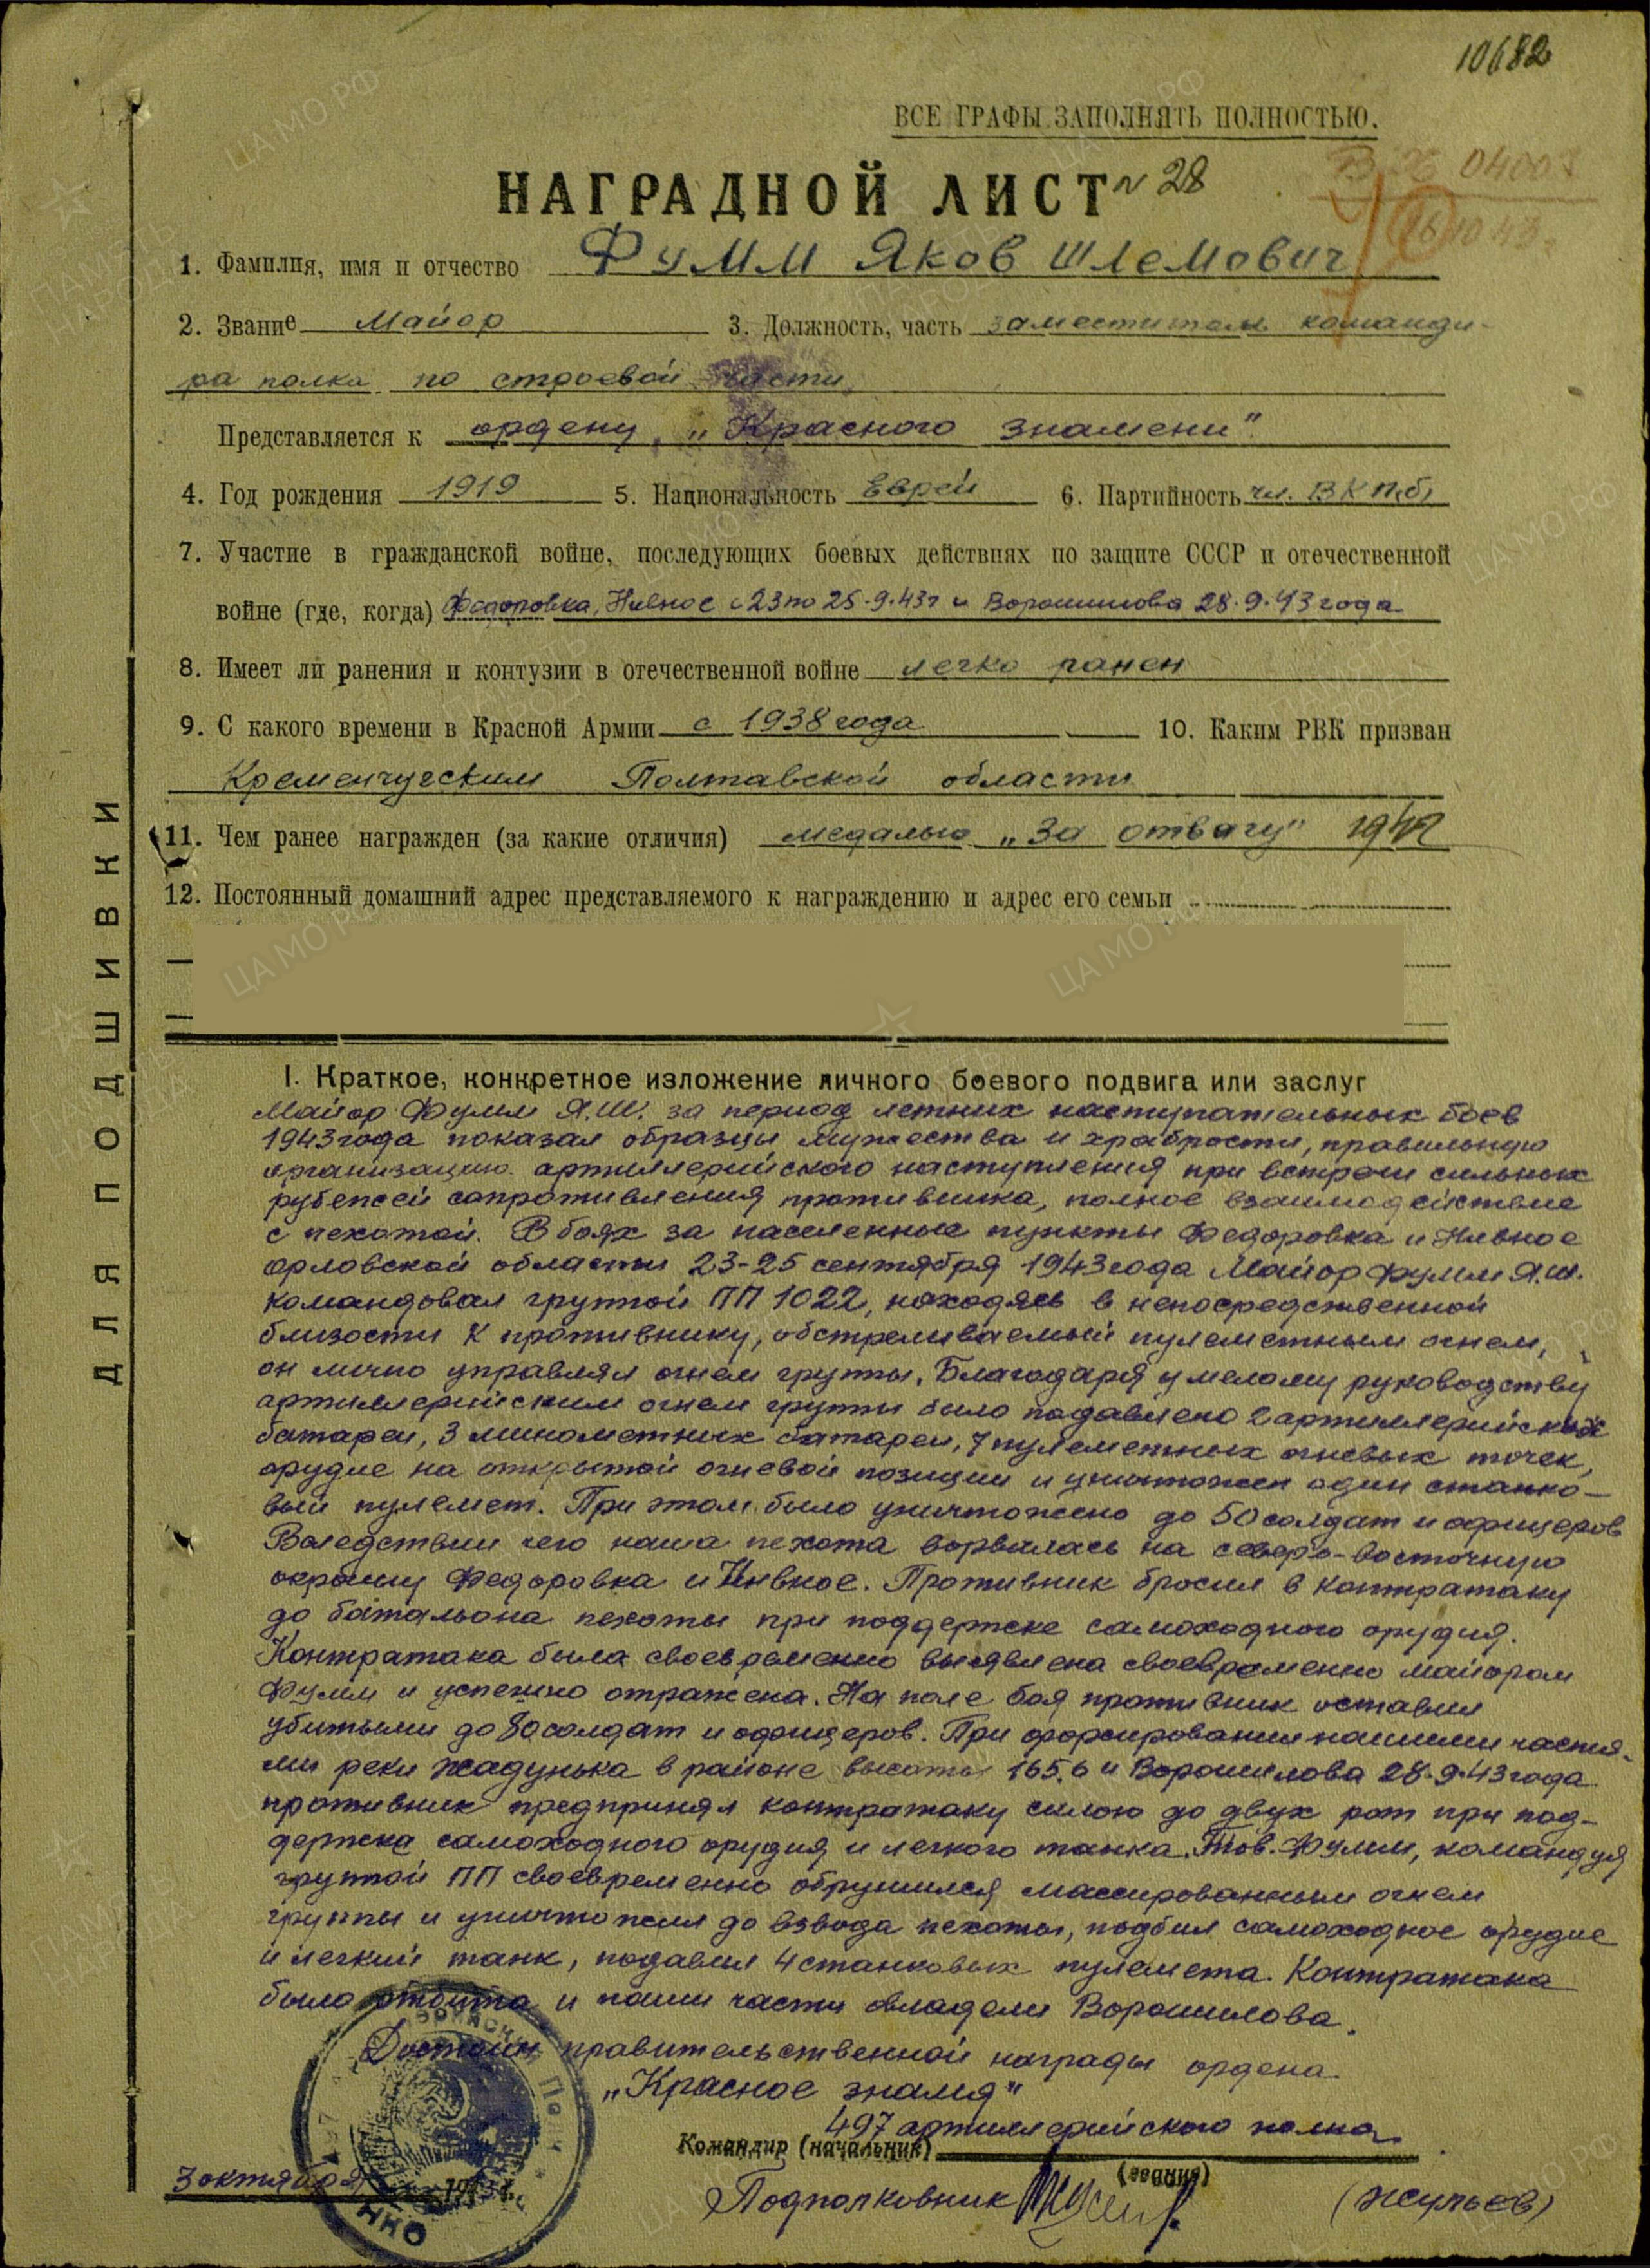 10682
ВСЕ ГРАФЫ ЗАПОЛНЯТЬ ПОЛНОСТЬЮ.
НАГРАДНОЙ ЛИСТ № 28
1. Фамилия, имя и отчество Фумм Яков Шлемович
2. Звание Майор 3. Должность, часть заместитель команди-
ра полка по строевой части
Представляется к ордену „Красного знамени"
4. Год рождения 1919 5. Национальность еврей 6. Партийность чл. ВКП(б)
7. Участие в гражданской войне, последующих боевых действиях по защите СССР и отечественной
войне (где, когда) Федоровка, Нивное с 23 по 25.9.43г и Ворошилова 28.9.43 года
8. Имеет ли ранения и контузии в отечественной войне легко ранен
9. С какого времени в Красной Армии с 1938 года 10. Каким РВК призван
Кременчугским Полтавской области
11. Чем ранее награжден (за какие отличия) медалью „За отвагу" 1942
12. Постоянный домашний адрес представляемого к награждению и адрес его семьи
ДЛЯ ПОДШИВКИ
I. Краткое, конкретное изложение личного боевого подвига или заслуг
Майор Фумм Я.Ш. за период летних наступательных боев
1943 года показал образцы мужества и храбрости, правильную
организацию артиллерийского наступления при встречи сильных
рубежей сопротивления противника, полное взаимодействие
с пехотой. В боях за населенные пункты Федоровка и Нивное
орловской области 23-25 сентября 1943 года Майор Фумм Я.Ш.
командовал группой ПП 1022, находясь в непосредственной
близости к противнику, обстреливаемый пулеметным огнем,
он лично управлял огнем группы. Благодаря умелому руководству
артиллерийским огнем группы было подавлено 2 артиллерийских
батареи, 3 минометных батареи, 7 пулеметных огневых точек,
орудие на открытой огневой позиции и уничтожен один станко-
вый пулемет. При этом было уничтожено до 50 солдат и офицеров
Вследствии чего наша пехота ворвалась на северо-восточную
окраину Федоровка и Нивное. Противник бросил в контратаку
до батальона пехоты при поддержке самоходного орудия.
Контратака была своевременно выявлена своевременно майором
Фумм и успешно отражена. На поле боя противник оставил
убитыми до 80 солдат и офицеров. При форсировании нашими частя-
ми реки Жадунька в районе высоты 165,6 и Ворошилова 28.9.43 года
противник предпринял контратаку силою до двух рот при под-
держке самоходного орудия и легкого танка. Тов. Фумм, командуя
группой ПП своевременно обрушился массированным огнем
группы и уничтожил до взвода пехоты, подбил самоходное орудие
и легкий танк, подавил 4 станковых пулемета. Контратака
была отбита и наши части овладели Ворошилова.
Достоин правительственной награды ордена
„Красное знамя"
497 артиллерийского полка
Командир (начальник)
(звание)
3 октября 1943 г.
Подполковник (Жульев)